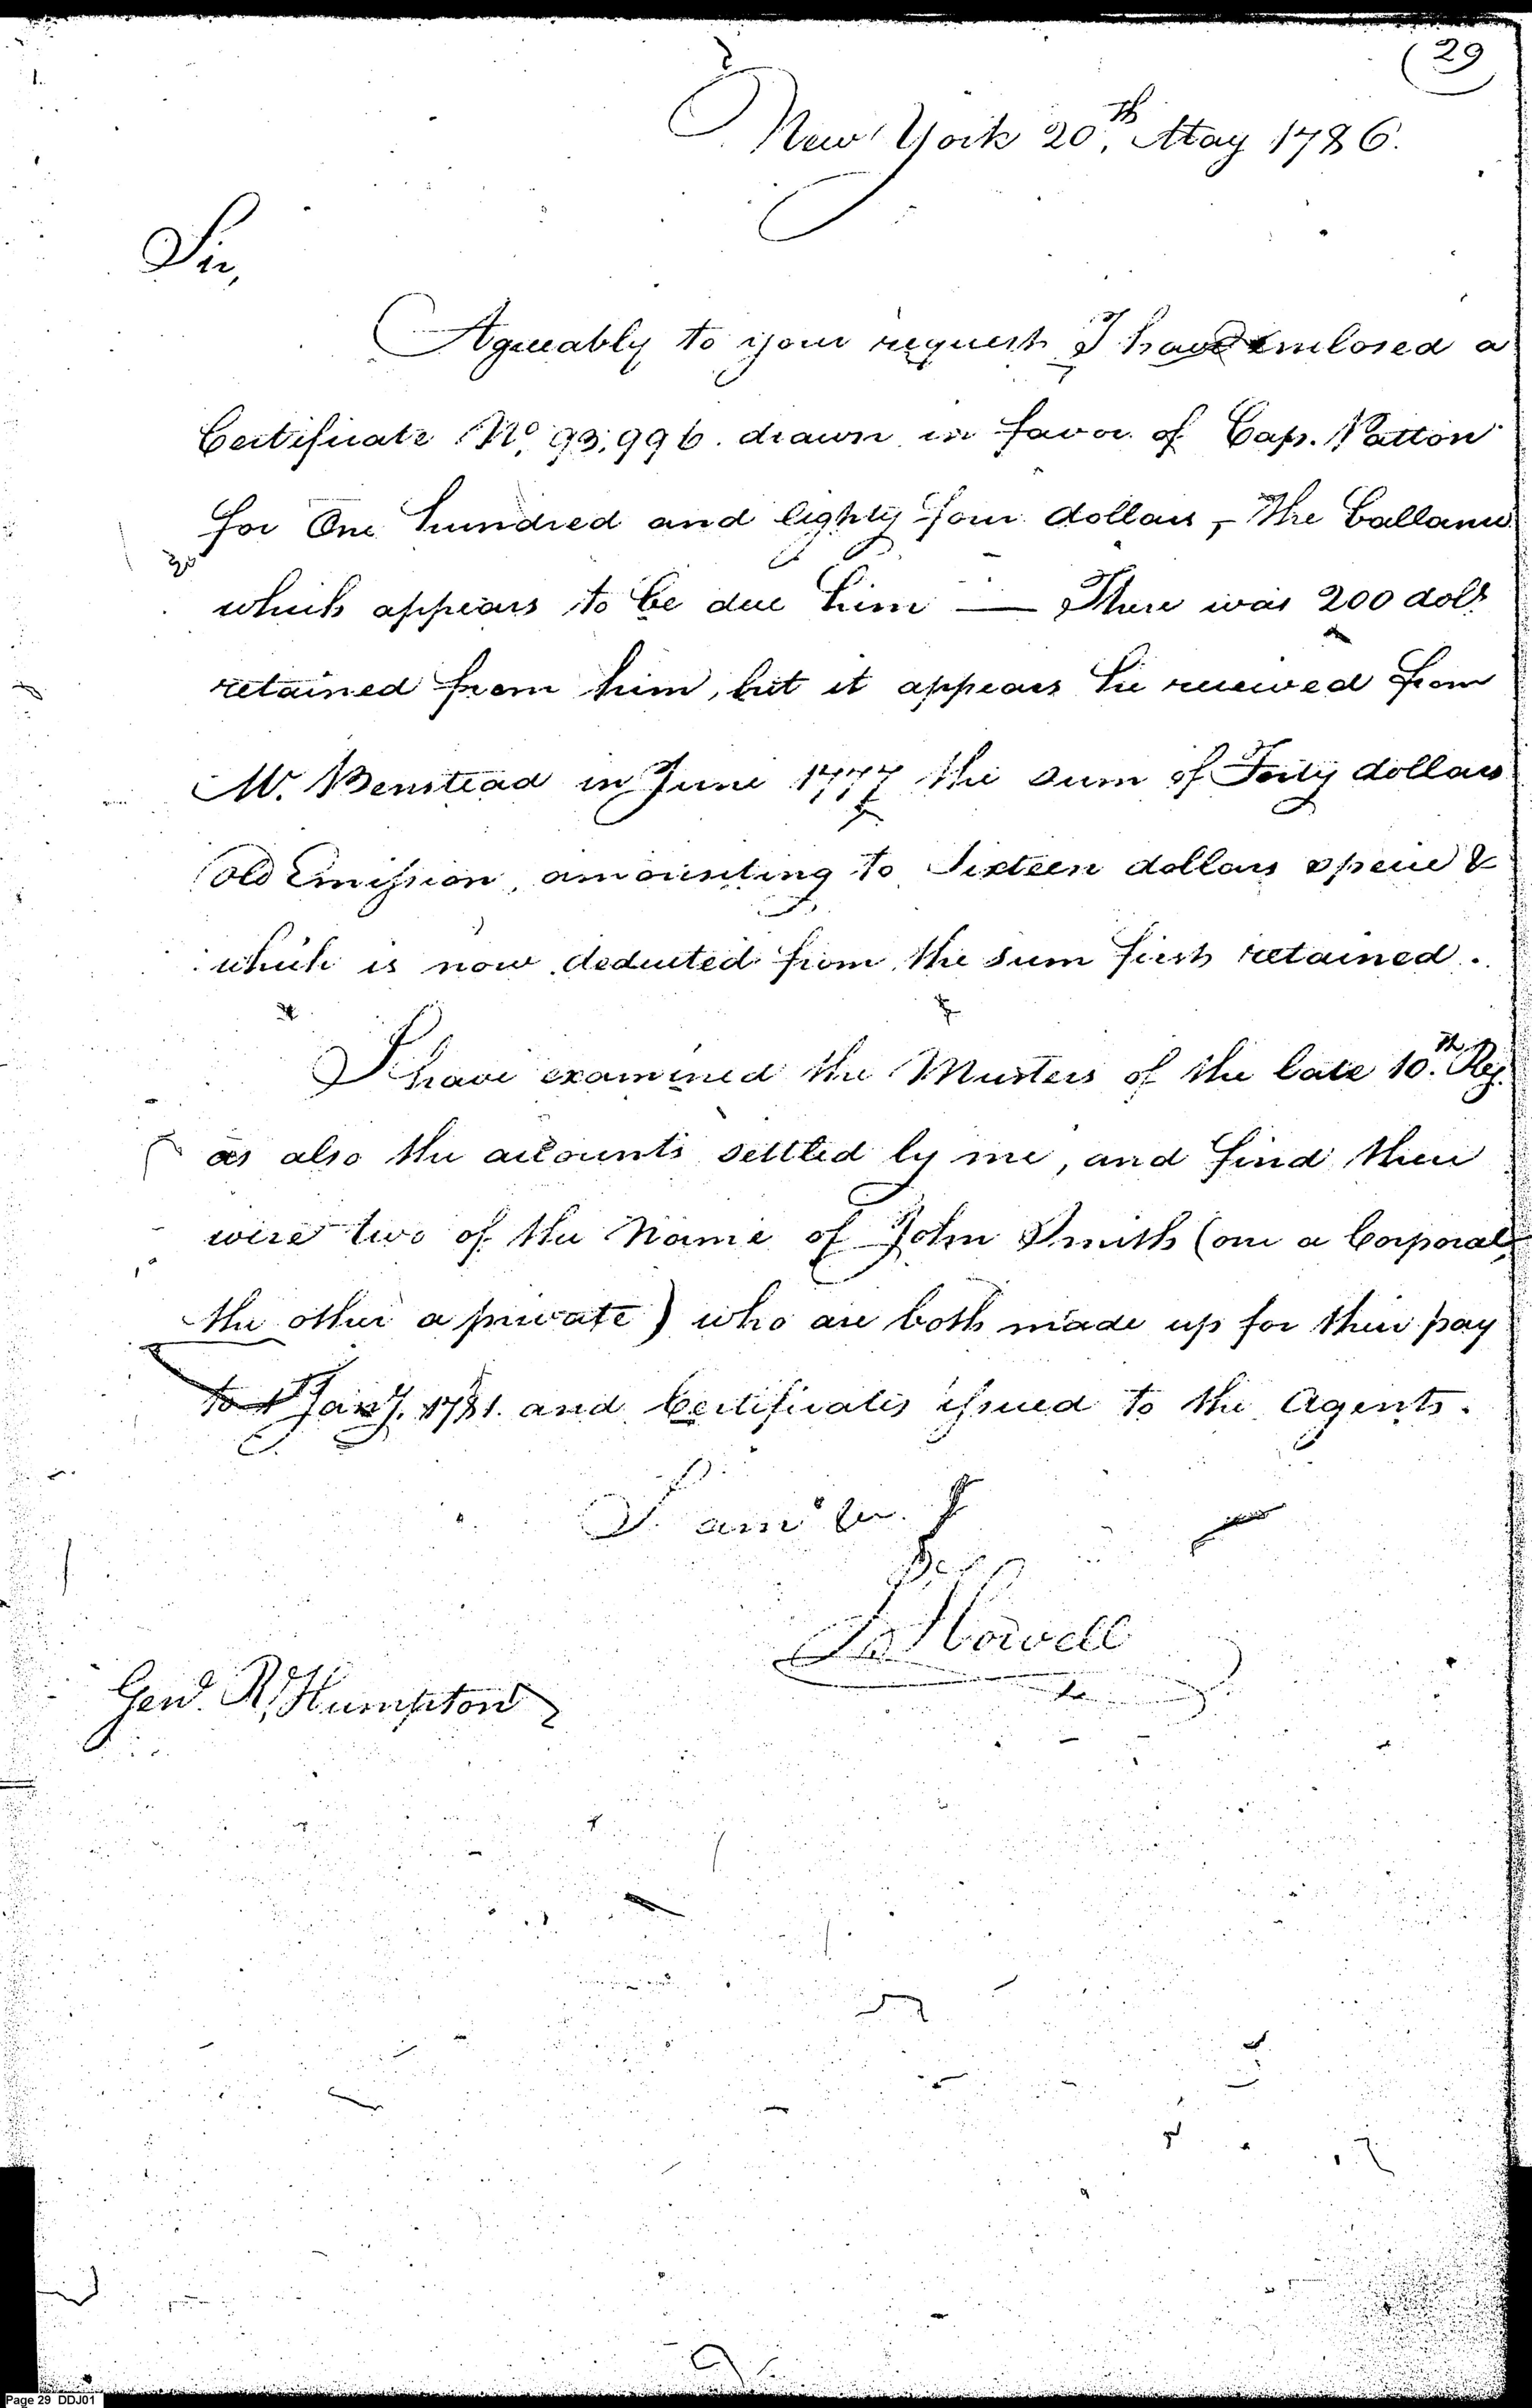 (29)
New York 20th May 1786.
Sir,
Agreeably to your request I have enclosed a
Certificate No. 93,996. drawn in favor of Cap. Patton
for One hundred and eighty four dollars, – The ballance
which appears to be due him — There was 200 dolls
retained from him, but it appears he received from
Mr. Benstead in June 1777 the sum of Forty dollars
Old Emission, amounting to Sixteen dollars specie &
which is now deducted from the sum first retained.
I have examined the Musters of the late 10th. Reg.
as also the accounts settled by me, and find there
were two of the Name of John Smith (one a Corporal,
the other a private) who are both made up for their pay
to 1st Jany. 1781. and Certificates issued to the Agents.
I am Sir. &
Jos Howell
Genl. R, Humpton
Page 29 DDJ01